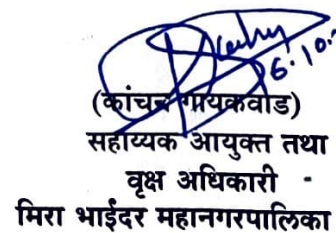 6.10.
(कांचन गायकवाड)
सहाय्यक आयुक्त तथा
वृक्ष अधिकारी
मिरा भाईंदर महानगरपालिका